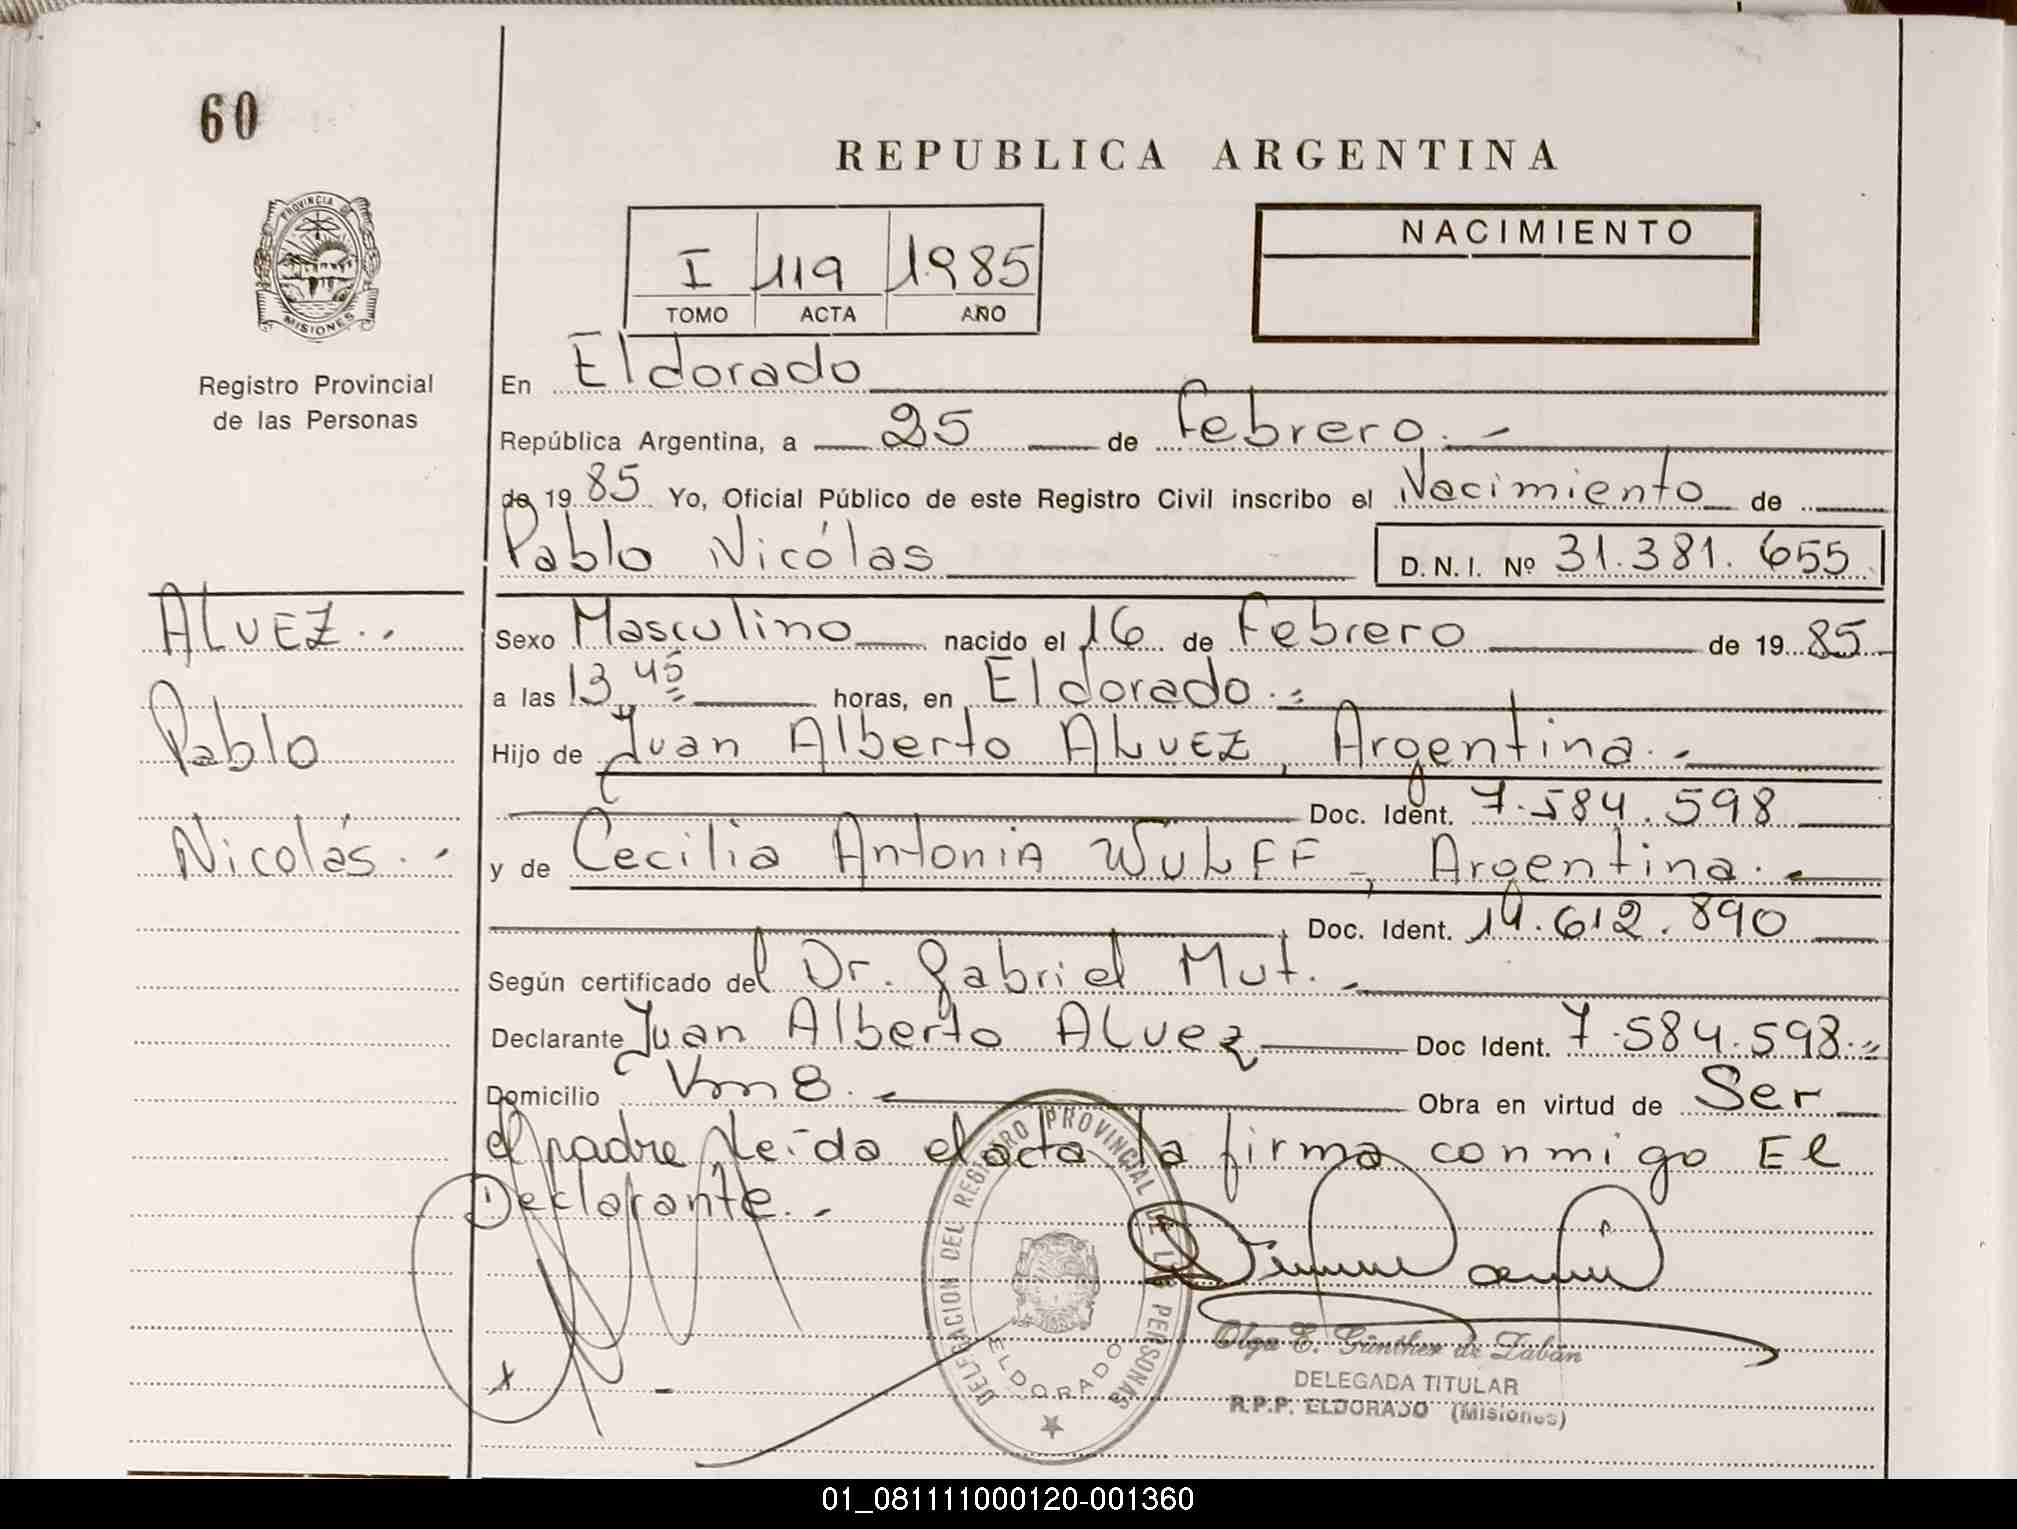 60
REPUBLICA ARGENTINA
PROVINCIA DE
MISIONES
Registro Provincial
de las Personas
I 119 1985
TOMO ACTA AÑO
NACIMIENTO
En Eldorado
República Argentina, a 25 de Febrero.-
de 1985 Yo, Oficial Público de este Registro Civil inscribo el Nacimiento de
Pablo Nicólas
D.N.I. Nº 31.381.655
ALVEZ.-
Pablo
Nicolás.-
Sexo Masculino nacido el 16 de Febrero de 1985
a las 13 45 horas, en Eldorado.=
Hijo de Juan Alberto ALVEZ, Argentina.-
Doc. Ident. 7.584.598
y de Cecilia Antonia WULFF-, Argentina.-
Doc. Ident. 14.612.890
Según certificado del Dr. Gabriel Mut.-
Declarante Juan Alberto ALVEZ Doc Ident. 7.584.598.=
Domicilio Km 8.- Obra en virtud de Ser
el padre leída el acta la firma conmigo El
Declarante.-
DELEGACION DEL REGISTRO PROVINCIAL DE LAS PERSONAS
ELDORADO
Olga E. Günther de Zabán
DELEGADA TITULAR
R.P.P. ELDORADO (Misiones)
01_081111000120-001360